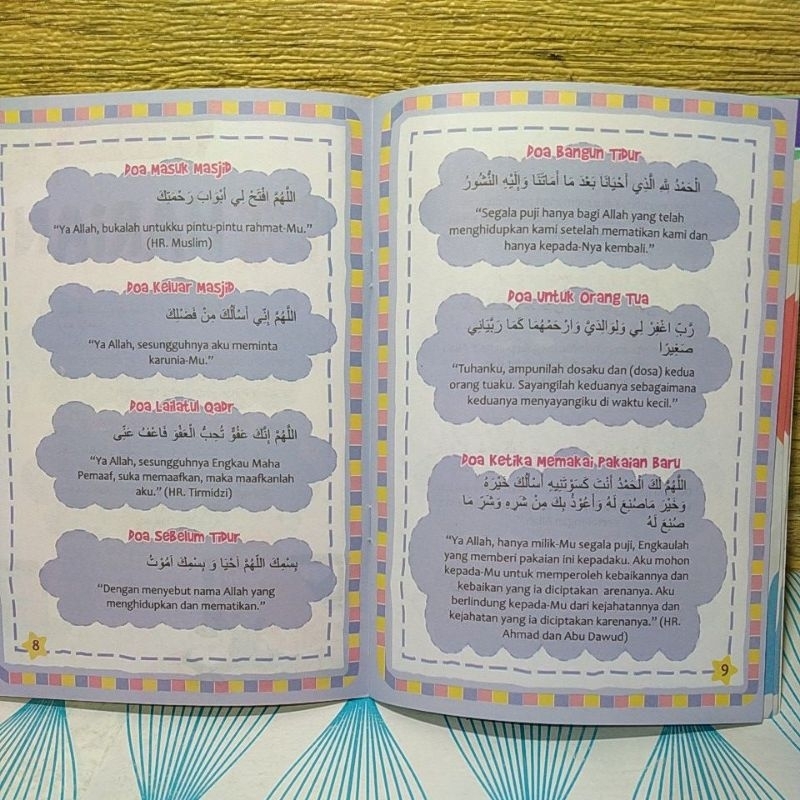 Doa Masuk Masjid
اللَّهُمَّ افْتَحْ لِي أَبْوَابَ رَحْمَتِكَ
“Ya Allah, bukalah untukku pintu-pintu rahmat-Mu.”
(HR. Muslim)
Doa Keluar Masjid
اللَّهُمَّ إِنِّي أَسْأَلُكَ مِنْ فَضْلِكَ
“Ya Allah, sesungguhnya aku meminta
karunia-Mu.”
Doa Lailatul Qadr
اللَّهُمَّ إِنَّكَ عَفُوٌّ تُحِبُّ الْعَفْوَ فَاعْفُ عَنِّى
“Ya Allah, sesungguhnya Engkau Maha
Pemaaf, suka memaafkan, maka maafkanlah
aku.” (HR. Tirmidzi)
Doa Sebelum Tidur
بِسْمِكَ اللَّهُمَّ أَحْيَا وَ بِسْمِكَ أَمُوْتُ
“Dengan menyebut nama Allah yang
menghidupkan dan mematikan.”
8
Doa Bangun Tidur
الْحَمْدُ للهِ الَّذِي أَحْيَانَا بَعْدَ مَا أَمَاتَنَا وَإِلَيْهِ النُّشُورُ
“Segala puji hanya bagi Allah yang telah
menghidupkan kami setelah mematikan kami dan
hanya kepada-Nya kembali.”
Doa Untuk Orang Tua
رَبِّ اغْفِرْ لِي وَلِوَالِدَيَّ وَارْحَمْهُمَا كَمَا رَبَّيَانِي
صَغِيرًا
“Tuhanku, ampunilah dosaku dan (dosa) kedua
orang tuaku. Sayangilah keduanya sebagaimana
keduanya menyayangiku di waktu kecil.”
Doa Ketika Memakai Pakaian Baru
اللَّهُمَّ لَكَ الْحَمْدُ أَنْتَ كَسَوْتَنِيهِ أَسْأَلُكَ خَيْرَهُ
وَخَيْرَ مَاصُنِعَ لَهُ وَأَعُوْذُ بِكَ مِنْ شَرِّهِ وَشَرِّ مَا
صُنِعَ لَهُ
“Ya Allah, hanya milik-Mu segala puji, Engkaulah
yang memberi pakaian ini kepadaku. Aku mohon
kepada-Mu untuk memperoleh kebaikannya dan
kebaikan yang ia diciptakan arenanya. Aku
berlindung kepada-Mu dari kejahatannya dan
kejahatan yang ia diciptakan karenanya.” (HR.
Ahmad dan Abu Dawud)
9